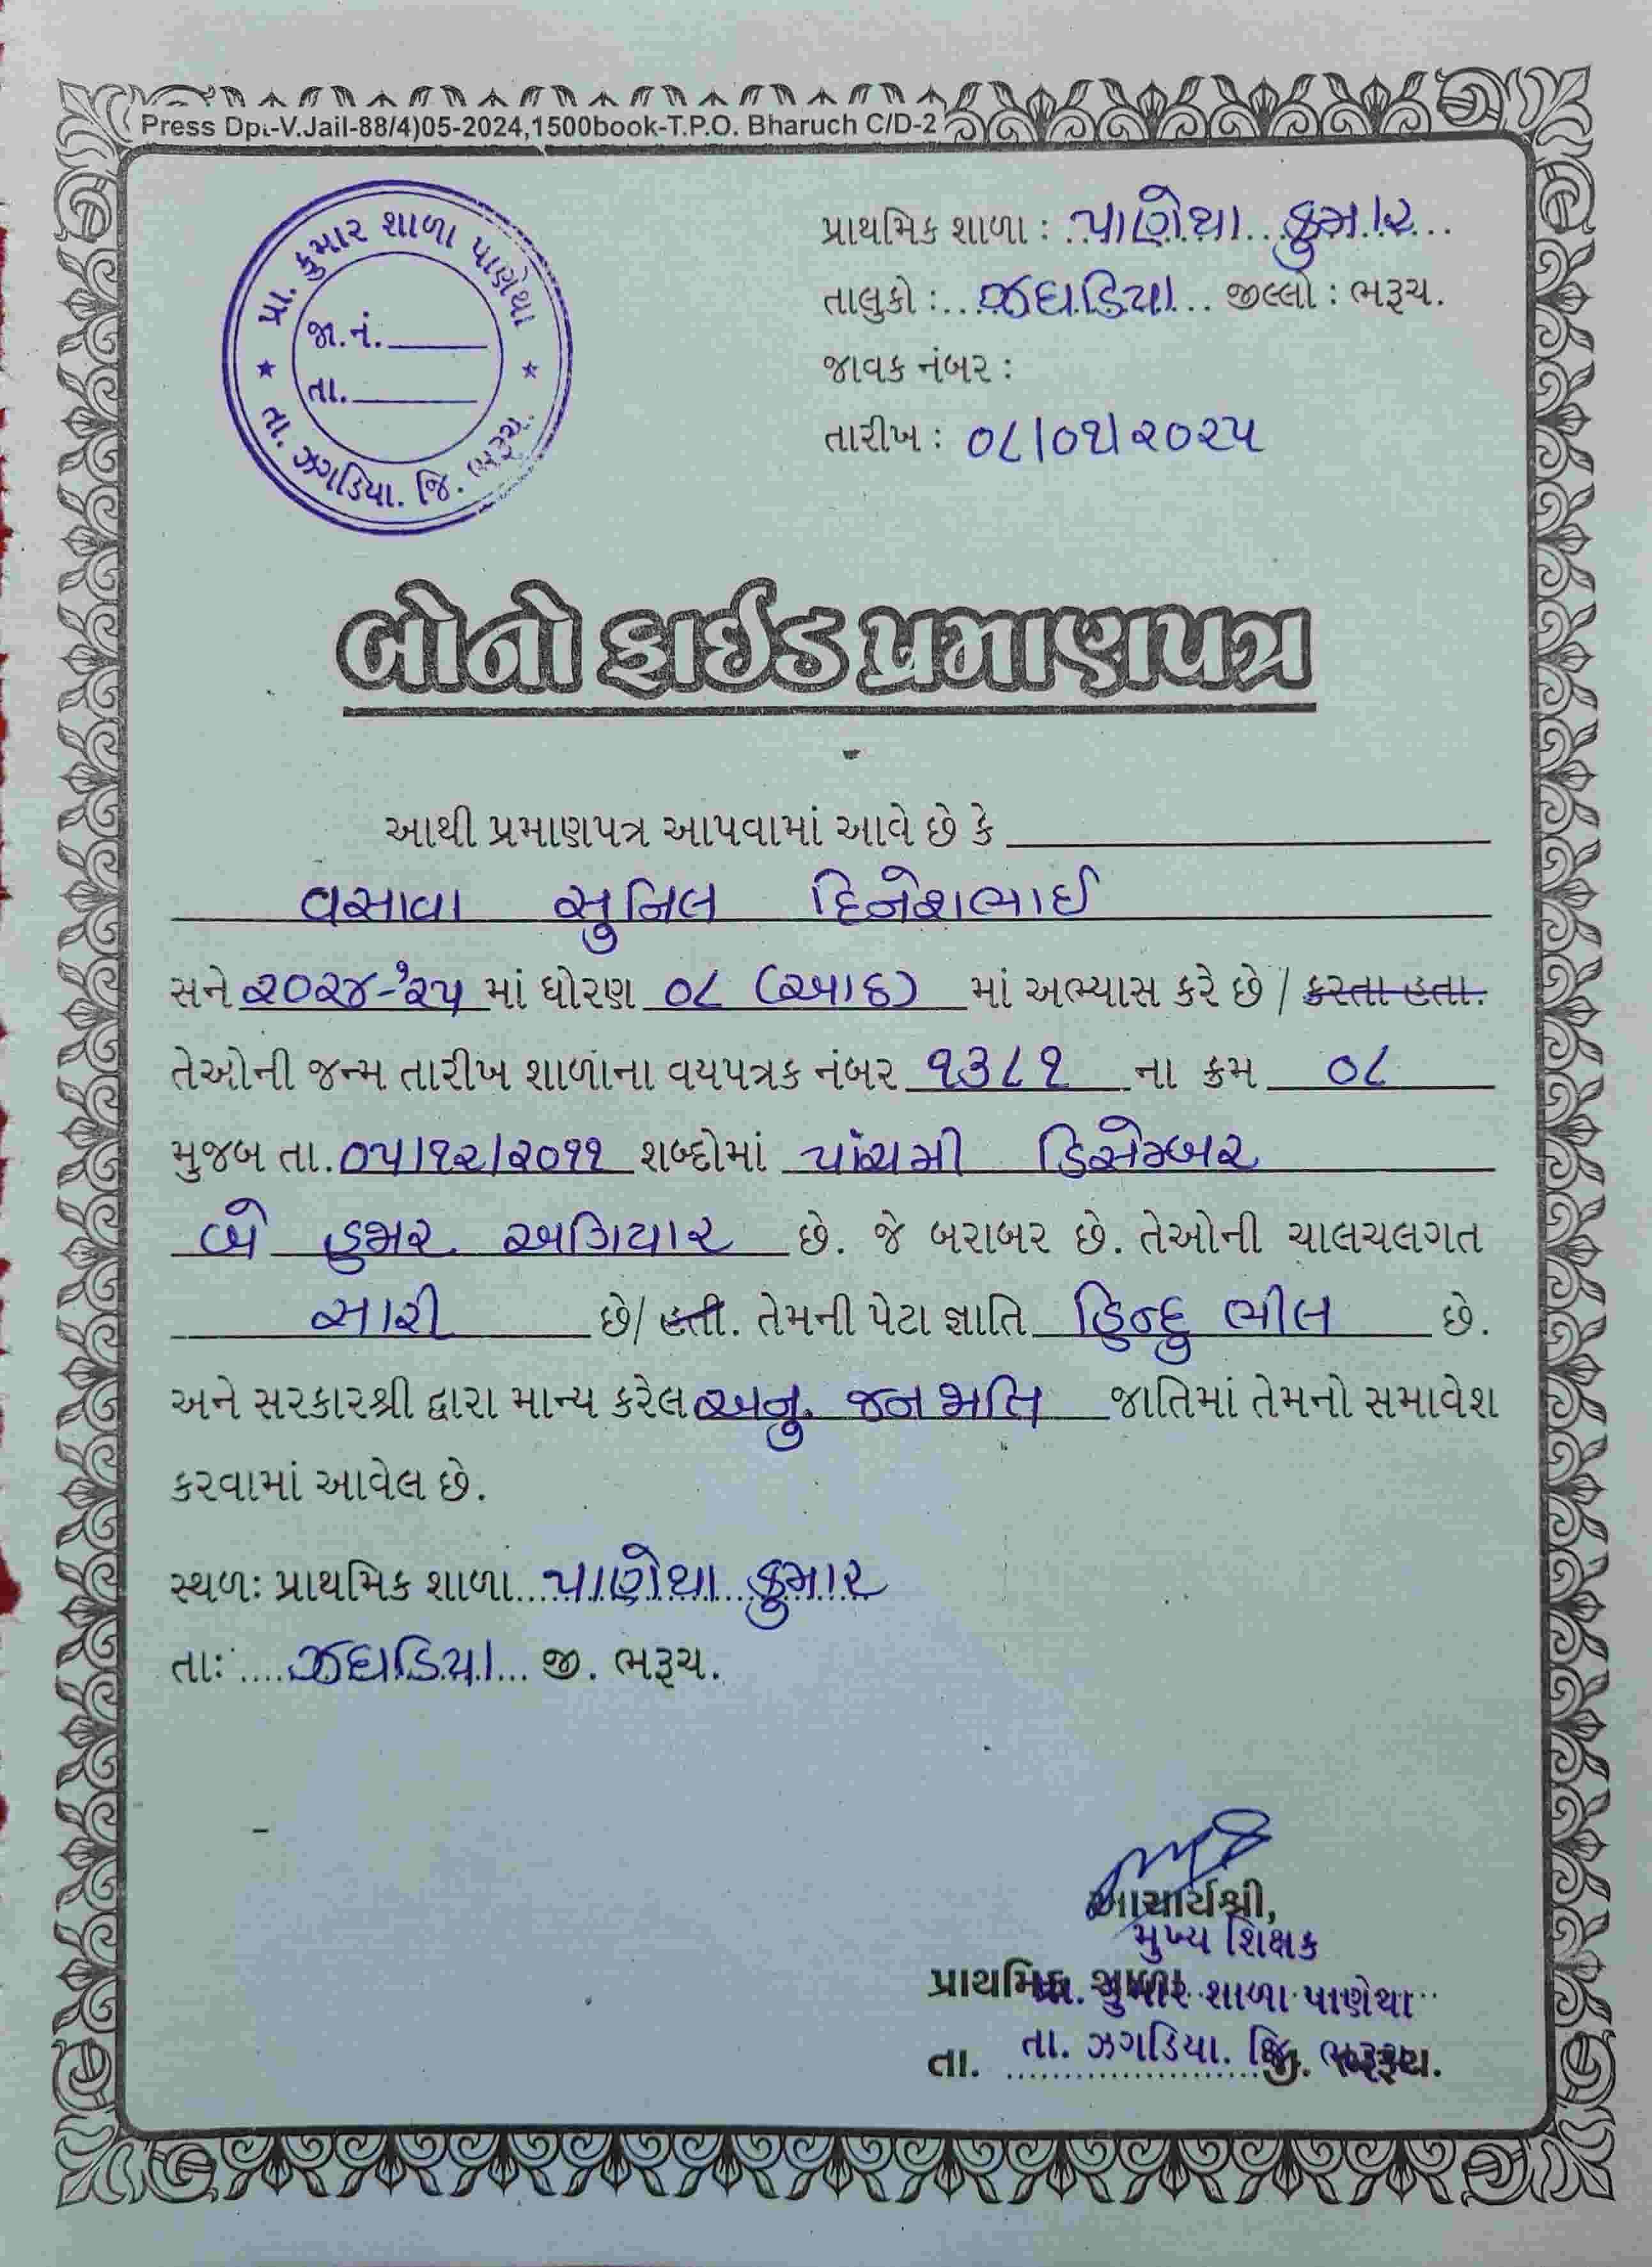 Press Dpt.-V.Jail-88/4)05-2024,1500book-T.P.O. Bharuch C/D-2
પ્રા. કુમાર શાળા પાણેથા
જા.નં.
તા.
તા. ઝગડિયા. જિ. ભરૂચ.
પ્રાથમિક શાળા : પાણેથા કુમાર
તાલુકો : ઝઘડિયા જીલ્લો : ભરૂચ.
જાવક નંબર :
તારીખ : ૦૮/૦૧/૨૦૨૫
બોનોફાઈડ પ્રમાણપત્ર
આથી પ્રમાણપત્ર આપવામાં આવે છે કે
વસાવા સુનિલ દિનેશભાઈ
સને ૨૦૨૪-'૨૫ માં ધોરણ ૦૮ (આઠ) માં અભ્યાસ કરે છે / કરતા હતા.
તેઓની જન્મ તારીખ શાળાના વયપત્રક નંબર ૧૩૮૧ ના ક્રમ ૦૮
મુજબ તા. ૦૫/૧૨/૨૦૧૧ શબ્દોમાં પાંચમી ડિસેમ્બર
બે હજાર અગિયાર છે. જે બરાબર છે. તેઓની ચાલચલગત
સારી છે/ હતી. તેમની પેટા જ્ઞાતિ હિન્દુ ભીલ છે.
અને સરકારશ્રી દ્વારા માન્ય કરેલ અનુ. જન જાતિ જાતિમાં તેમનો સમાવેશ
કરવામાં આવેલ છે.
સ્થળઃ પ્રાથમિક શાળા પાણેથા કુમાર
તાઃ ઝઘડિયા જી. ભરૂચ.
આચાર્યશ્રી,
મુખ્ય શિક્ષક
પ્રાથમિક શાળા
પ્રા. કુમાર શાળા પાણેથા
તા. ઝગડિયા. જિ. ભરૂચ.
તા. જી. ભરૂચ.